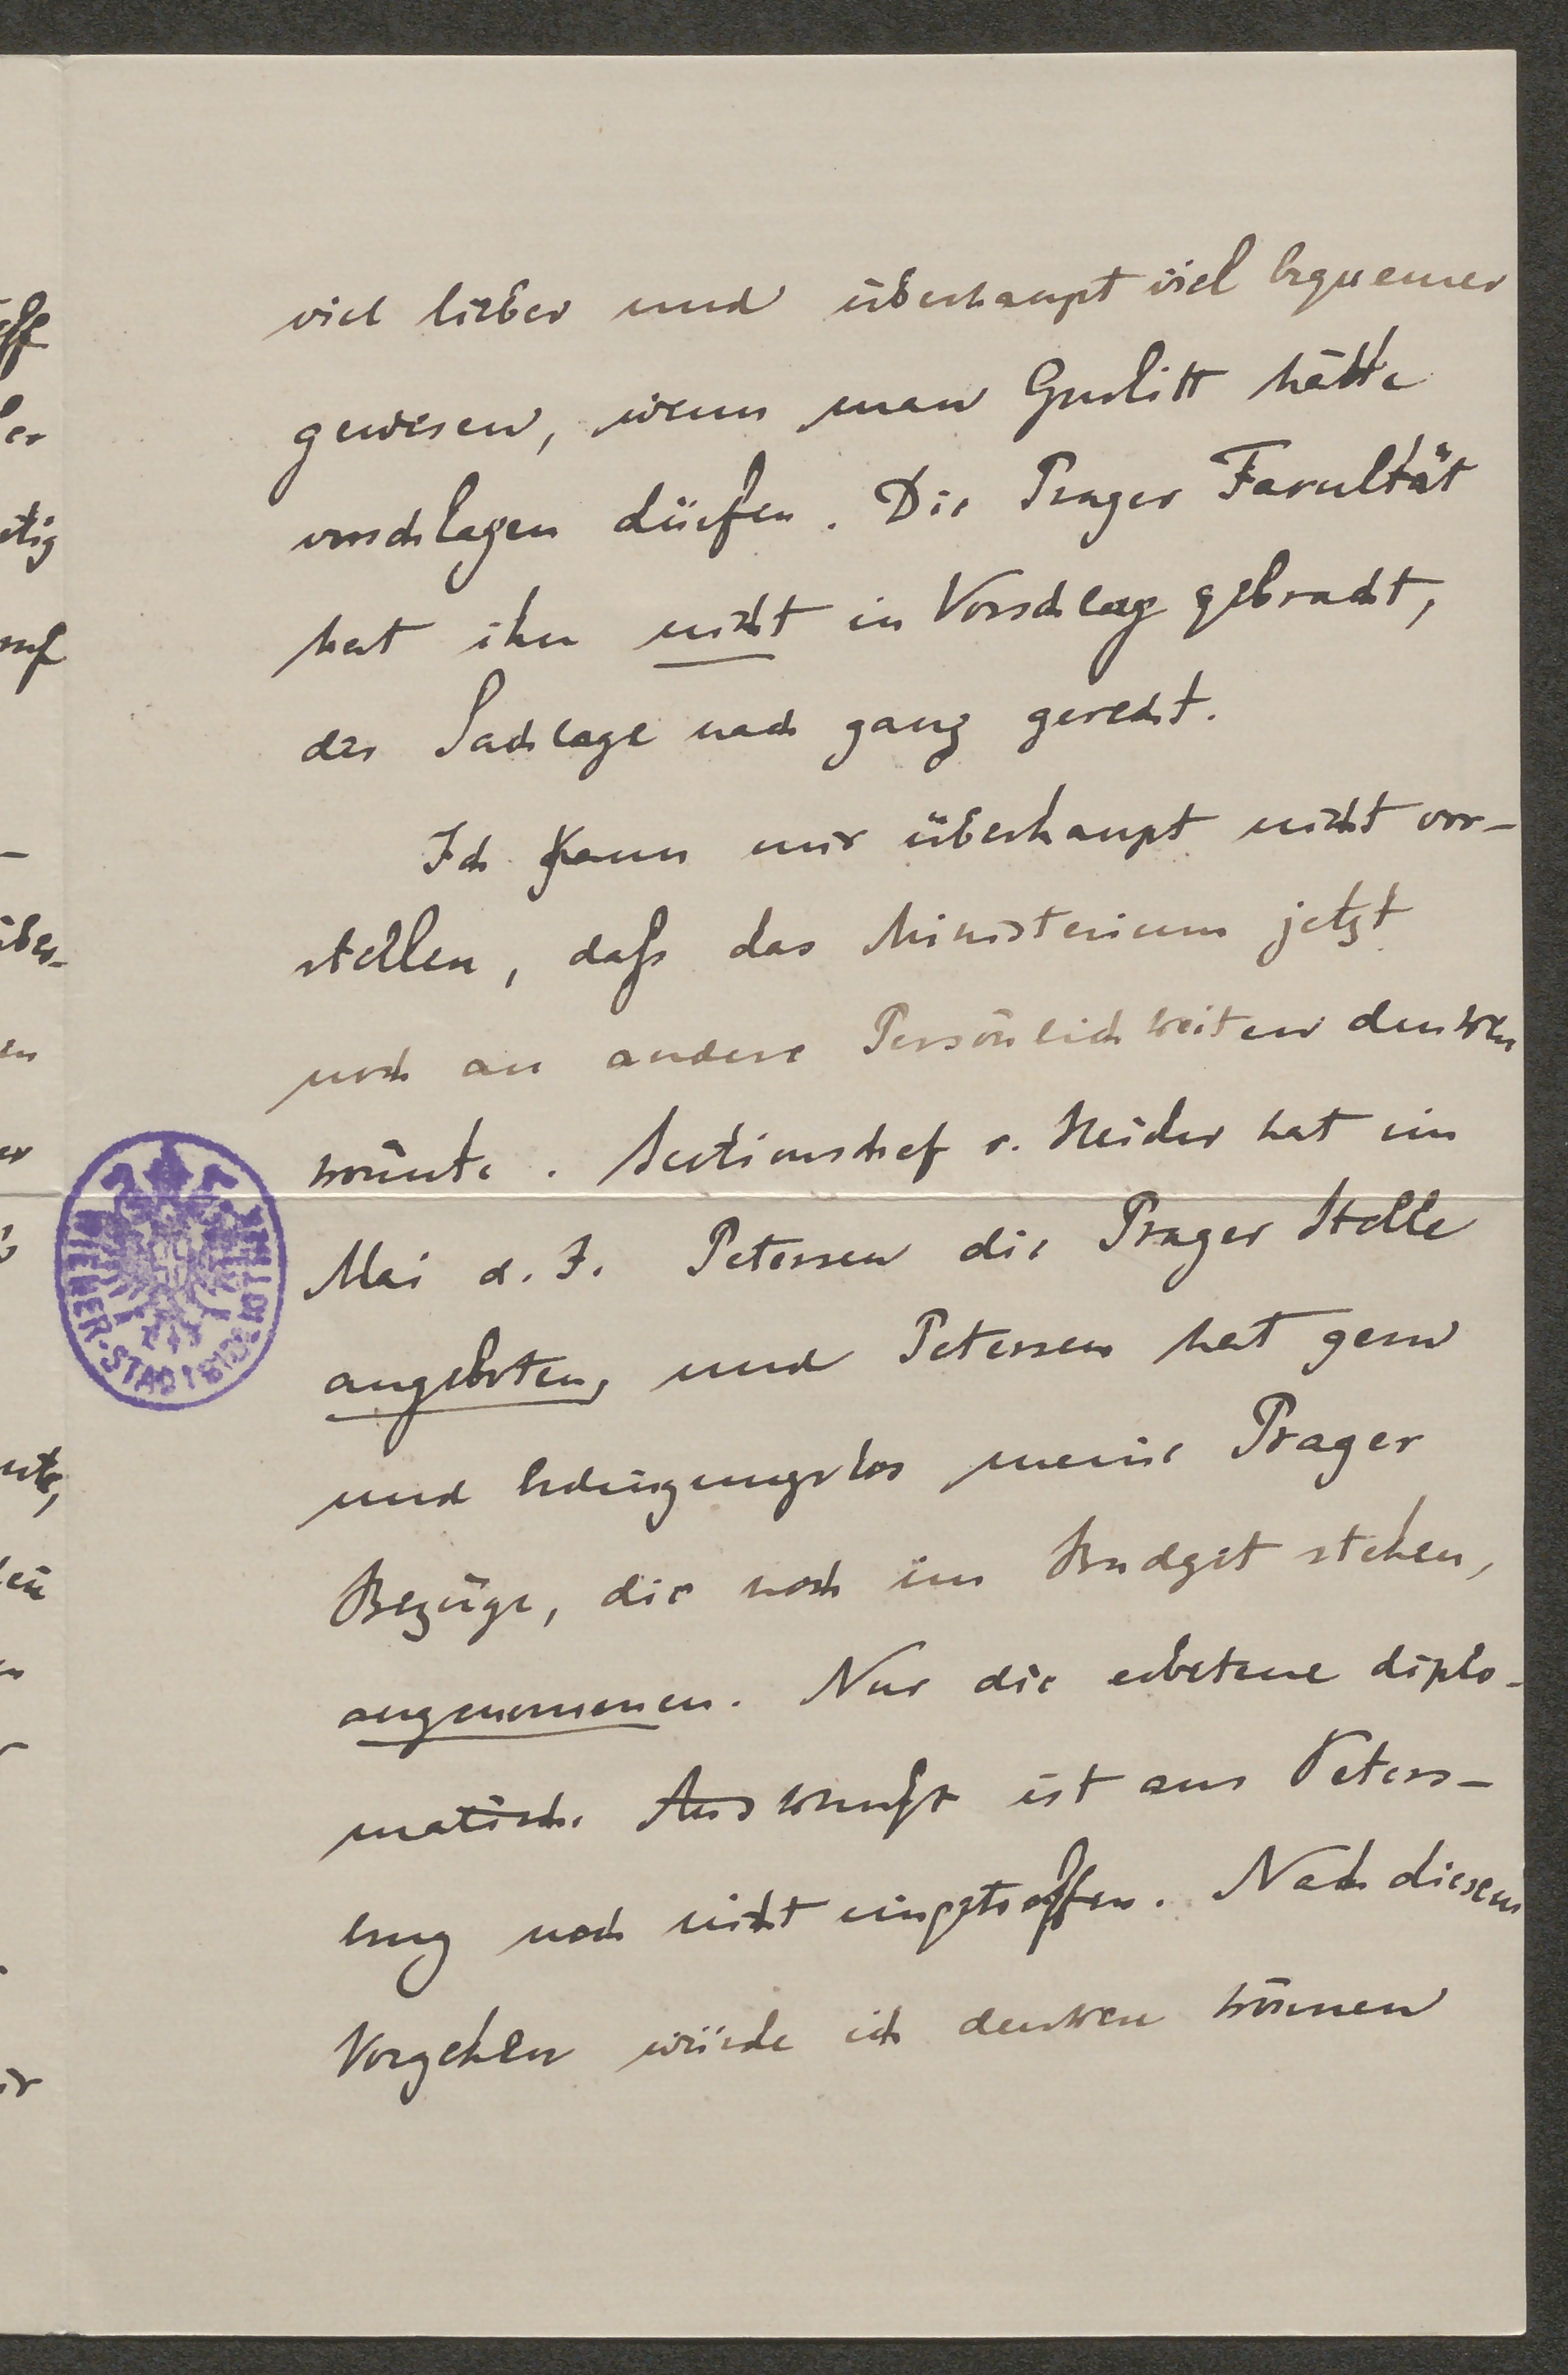 viel lieber und überhaupt viel bequemer
gewesen, wenn man Gurlitt hätte
vorschlagen dürfen. Die Prager Facultät
hat ihn nicht in Vorschlag gebracht,
der Sachlage nach ganz gerecht.
Ich kann mir überhaupt nicht vor-
stellen, daß das Ministerium jetzt
noch an andere Persönlichkeiten denken
könnte. Sectionschef v. Heider hat im
Mai d. J. Petersen die Prager Stelle
angeboten, und Petersen hat gern
und bedingungslos meine Prager
Bezüge, die noch im Budget stehen,
angenommen. Nur die erbetene diplo-
matische Auskunft ist aus Peters-
burg noch nicht eingetroffen. Nach diesem
Vorgehen würde ich denken können
WIENER-STADTBIBLIOTHEK